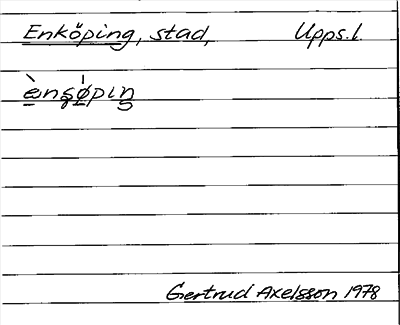 Enköping, stad, Upps.l.
è̠nȿø̍piŋ
Gertrud Axelsson 1978